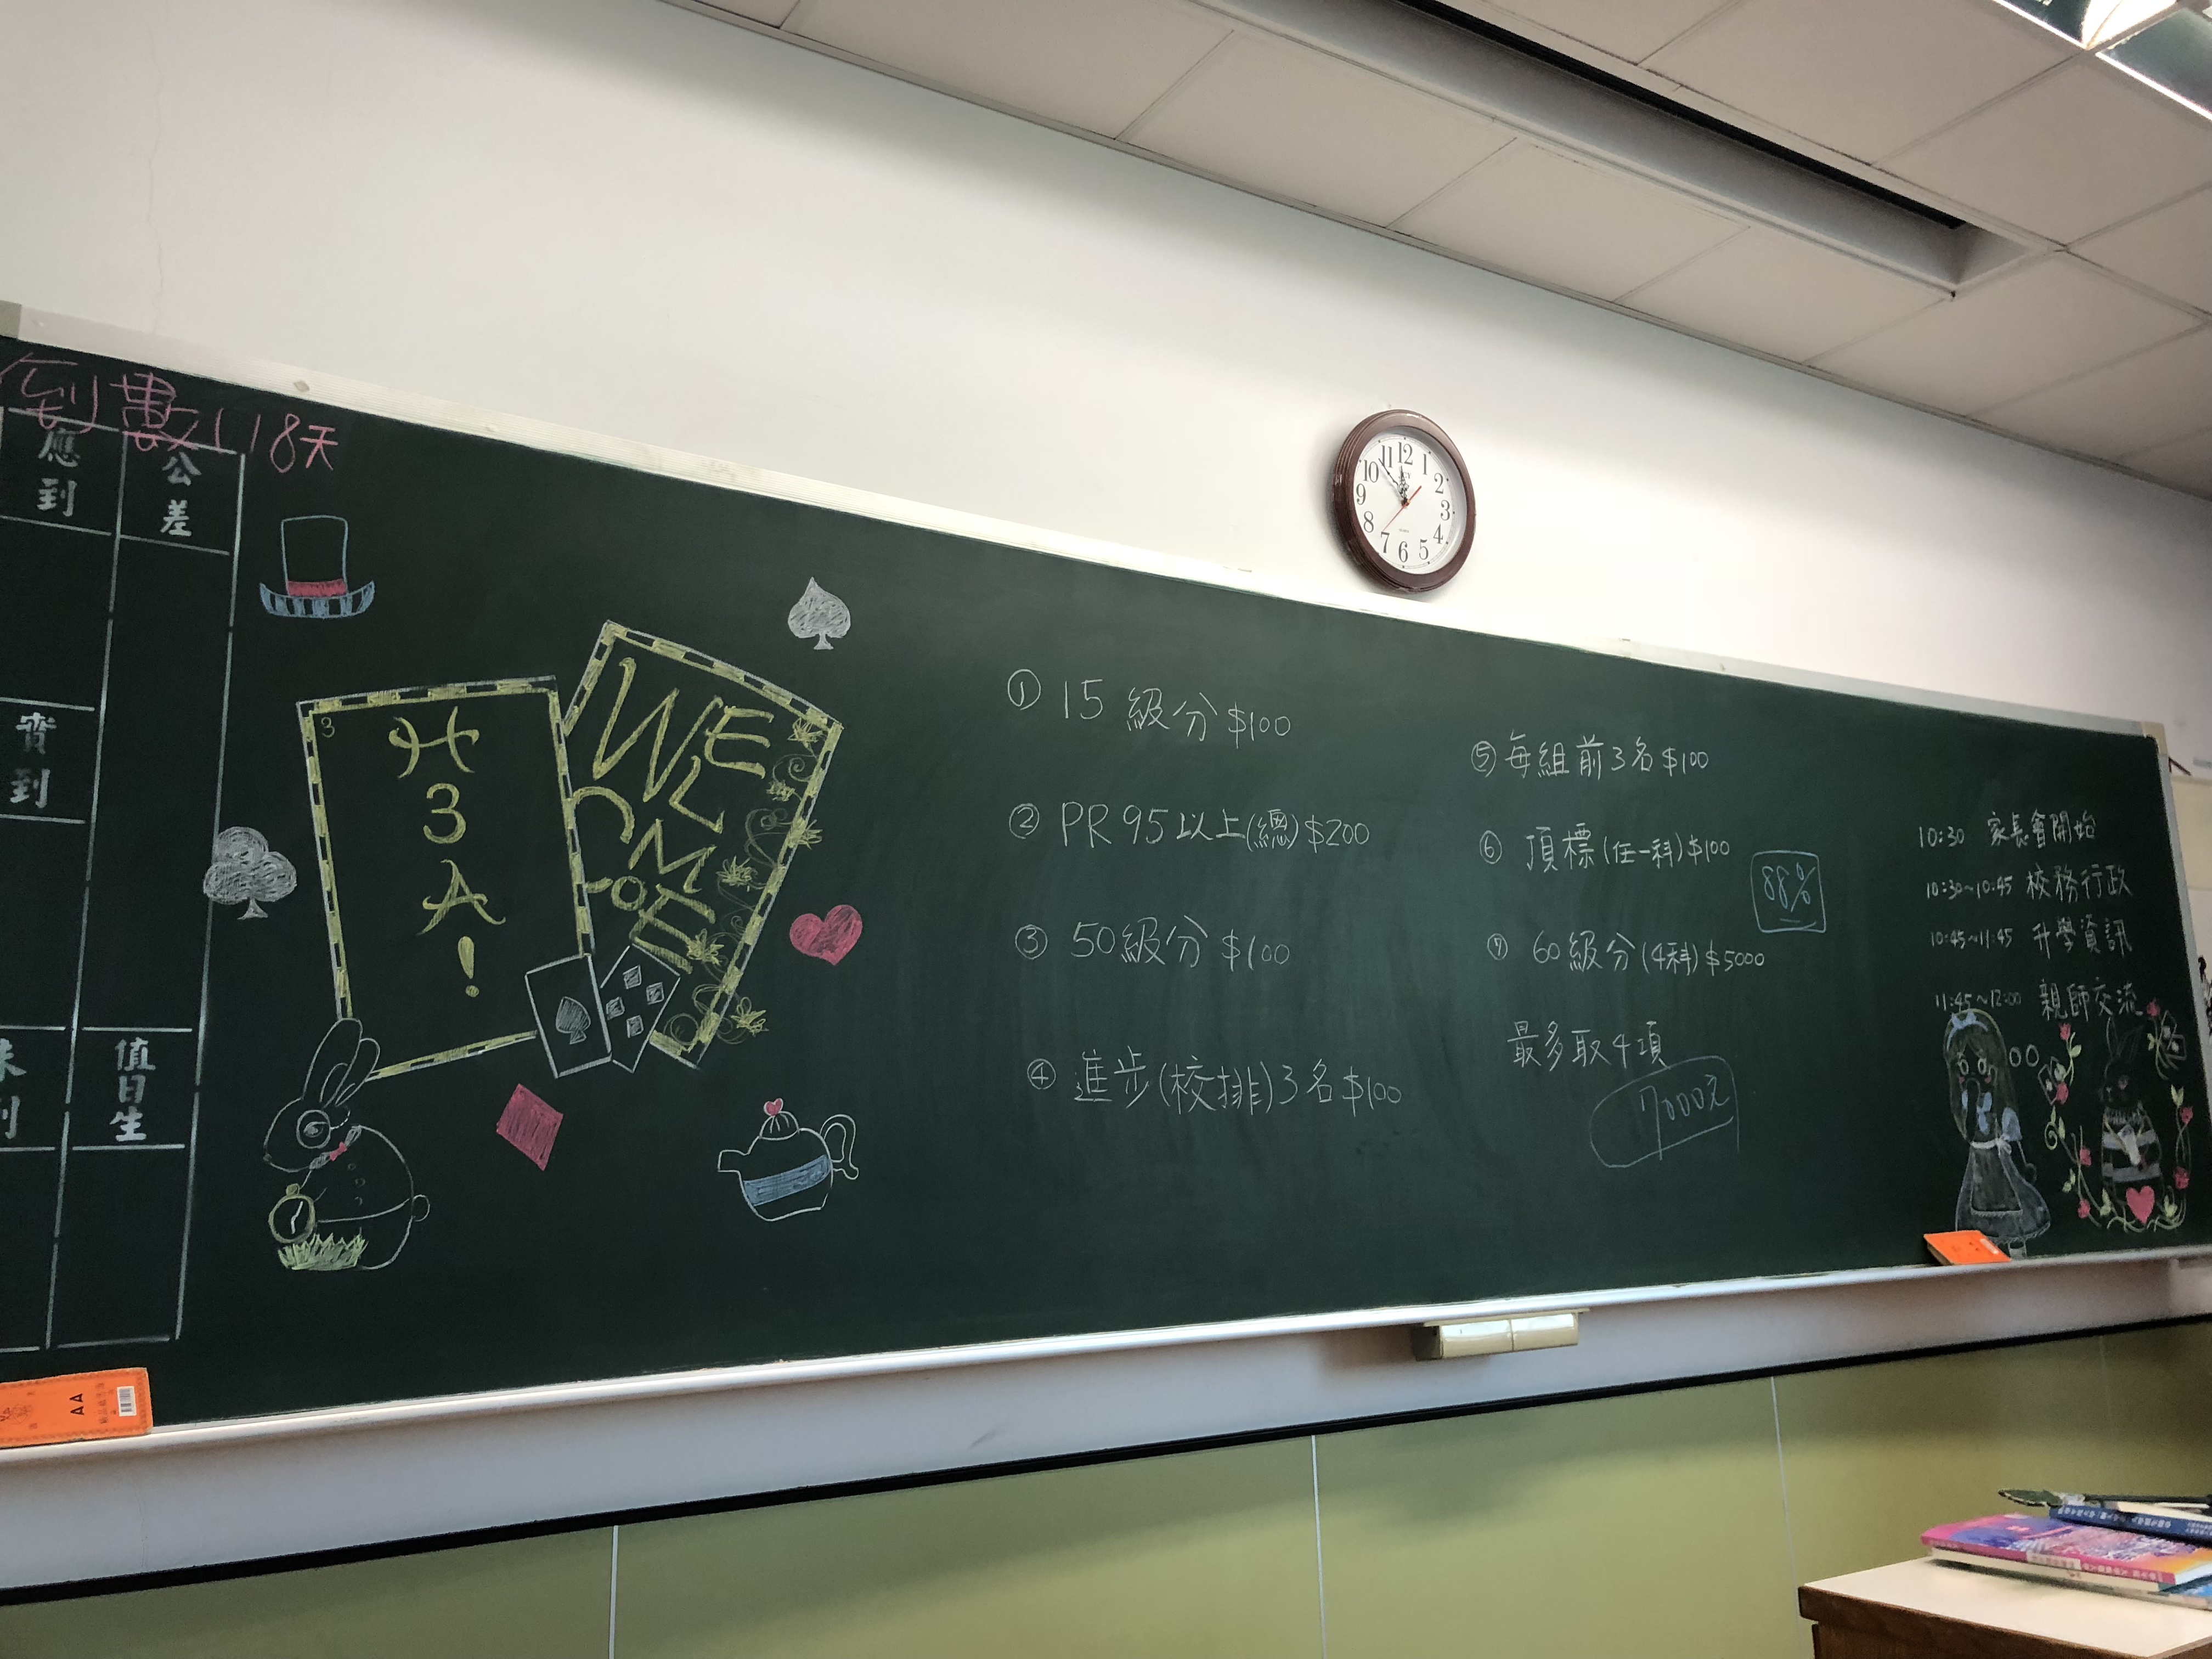 倒數118天
應到
公差
實到
未到
值日生
3
H
3
A
!
WELCOME
① 15 級分 $100
② PR 95 以上(總) $200
③ 50級分 $100
④ 進步(校排)3名 $100
⑤ 每組前3名 $100
⑥ 頂標(任一科) $100
88%
⑦ 60級分(4科) $5000
最多取4項
7000元
10:30 家長會開始
10:30~10:45 校務行政
10:45~11:45 升學資訊
11:45~12:00 親師交流
12
1
2
3
4
5
6
7
8
9
10
11
AA